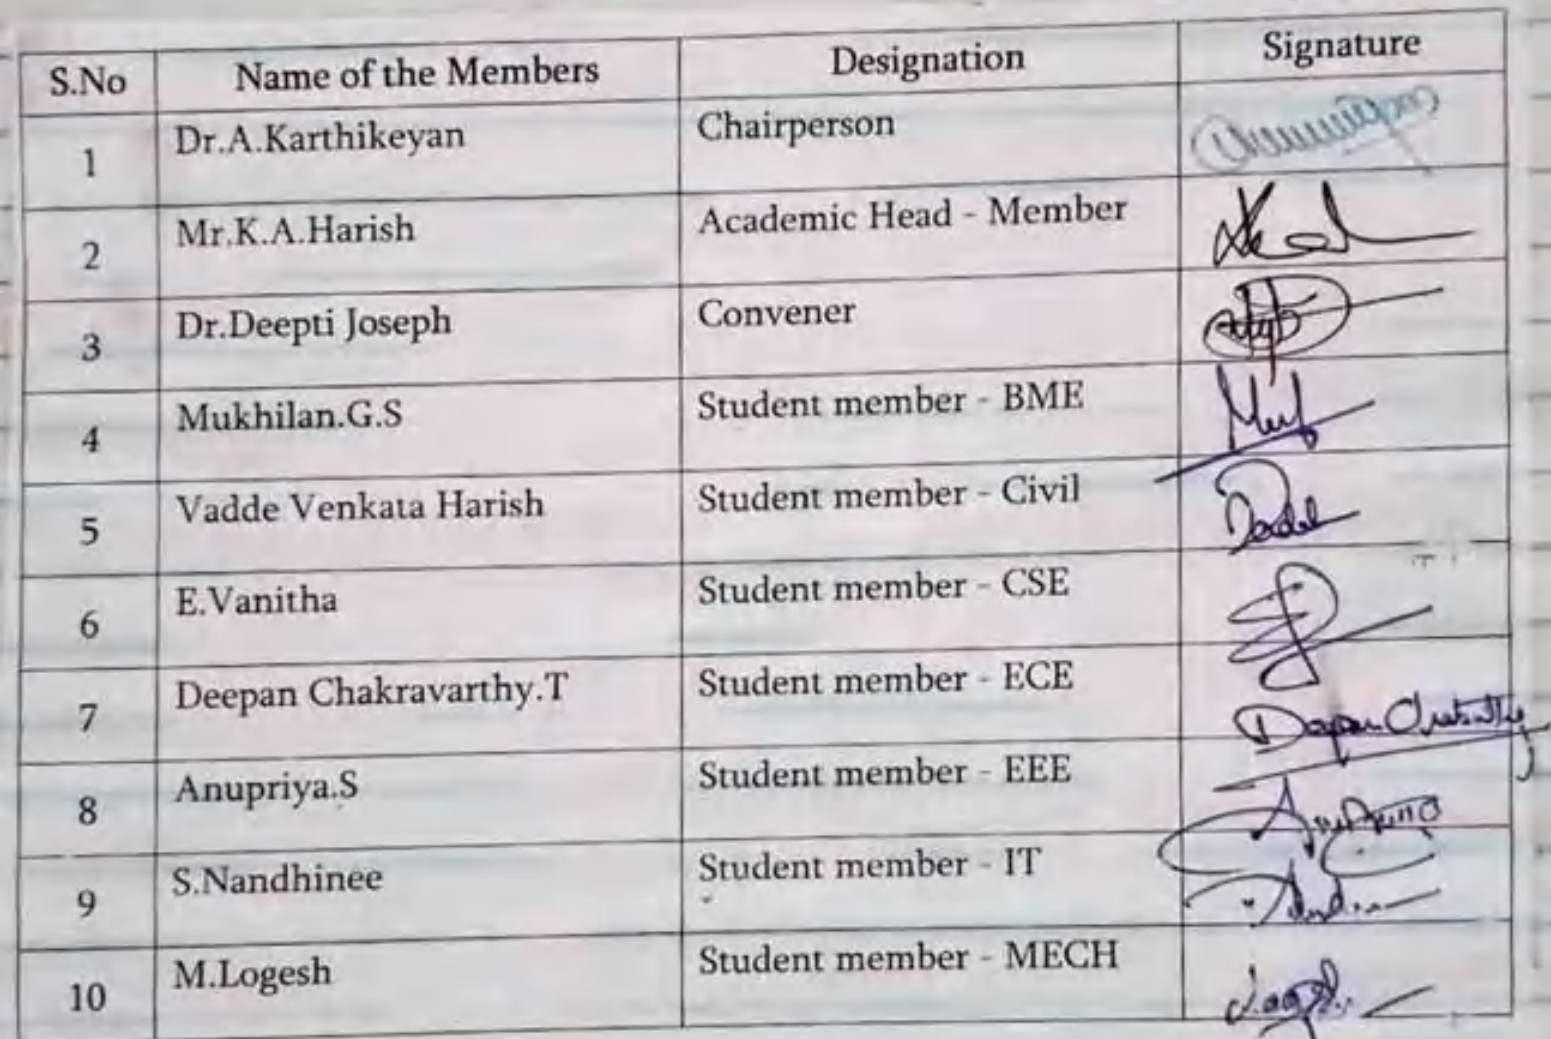 S.No Name of the Members Designation Signature
1 Dr.A.Karthikeyan Chairperson
2 Mr.K.A.Harish Academic Head - Member
3 Dr.Deepti Joseph Convener
4 Mukhilan.G.S Student member - BME
5 Vadde Venkata Harish Student member - Civil
6 E.Vanitha Student member - CSE
7 Deepan Chakravarthy.T Student member - ECE
8 Anupriya.S Student member - EEE
9 S.Nandhinee Student member - IT
10 M.Logesh Student member - MECH